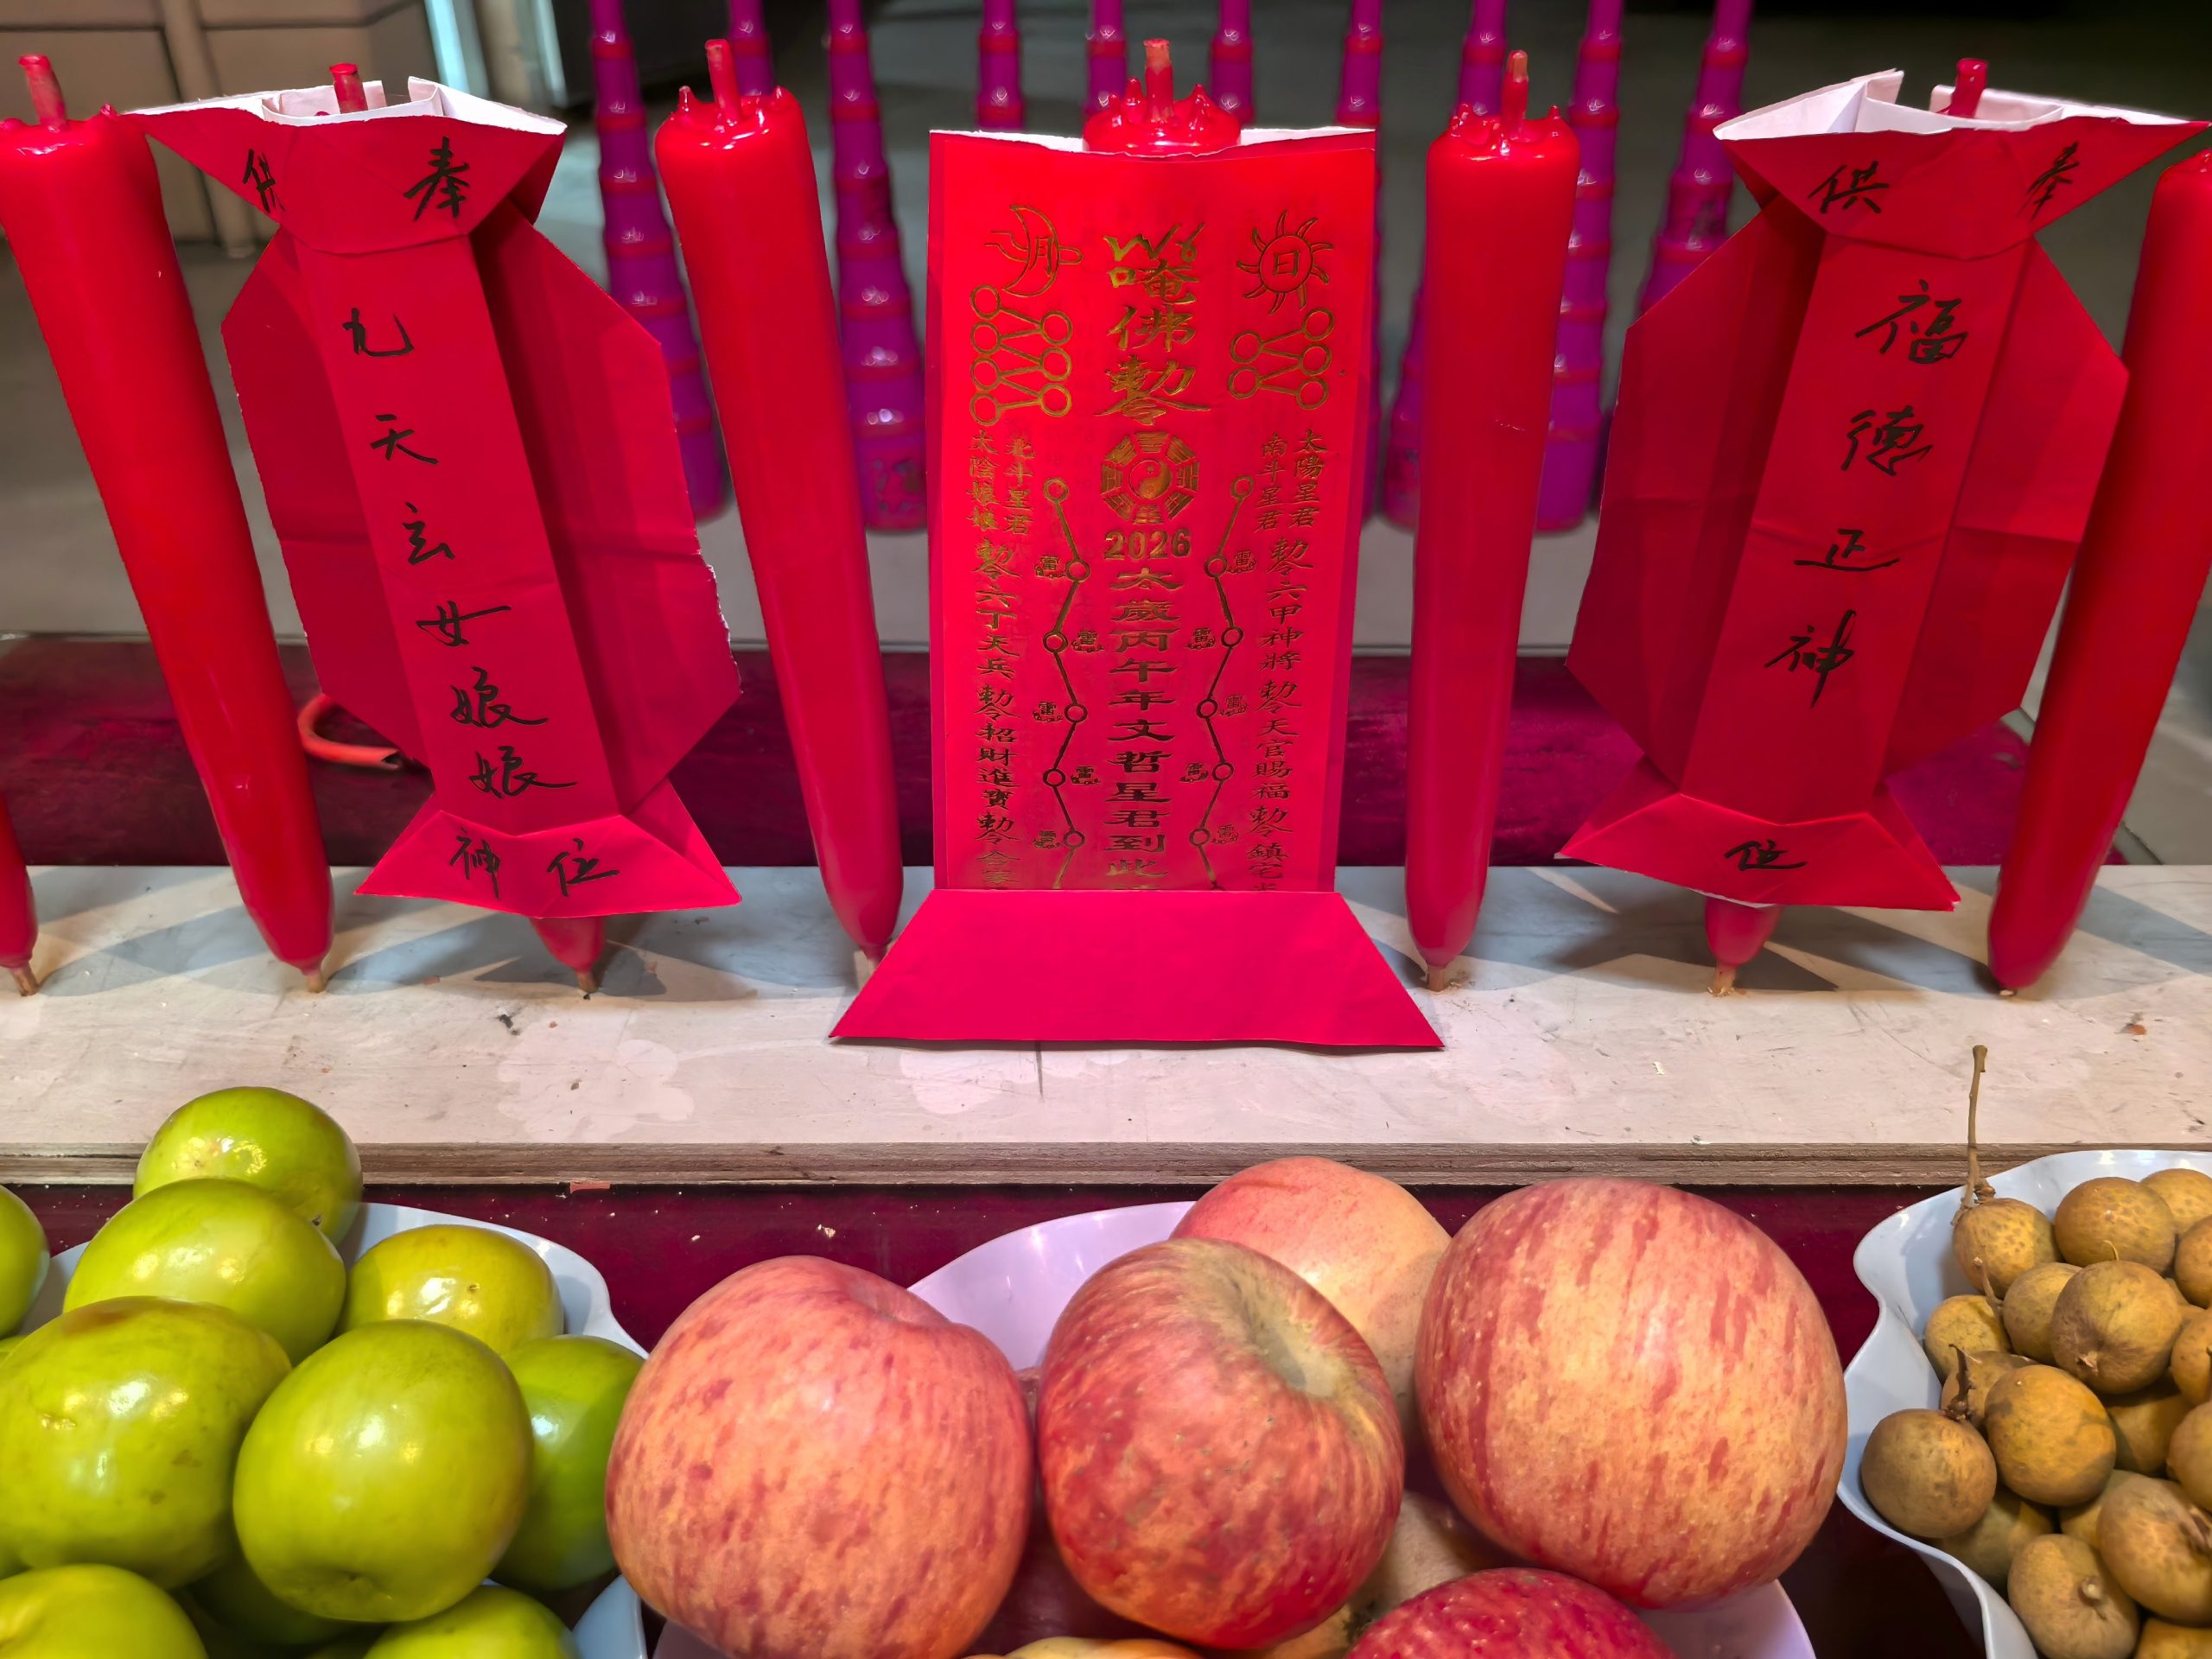 奉供
九天玄女娘娘
神位
月
日
唵佛勅令
2026
太歲丙午年文哲星君到此
太陽星君
南斗星君
勅令六甲神將
勅令天官賜福
勅令鎮宅
北斗星君
太陰娘娘
勅令六丁天兵
勅令招財進寶
勅令合家
奉供
福德正神
位